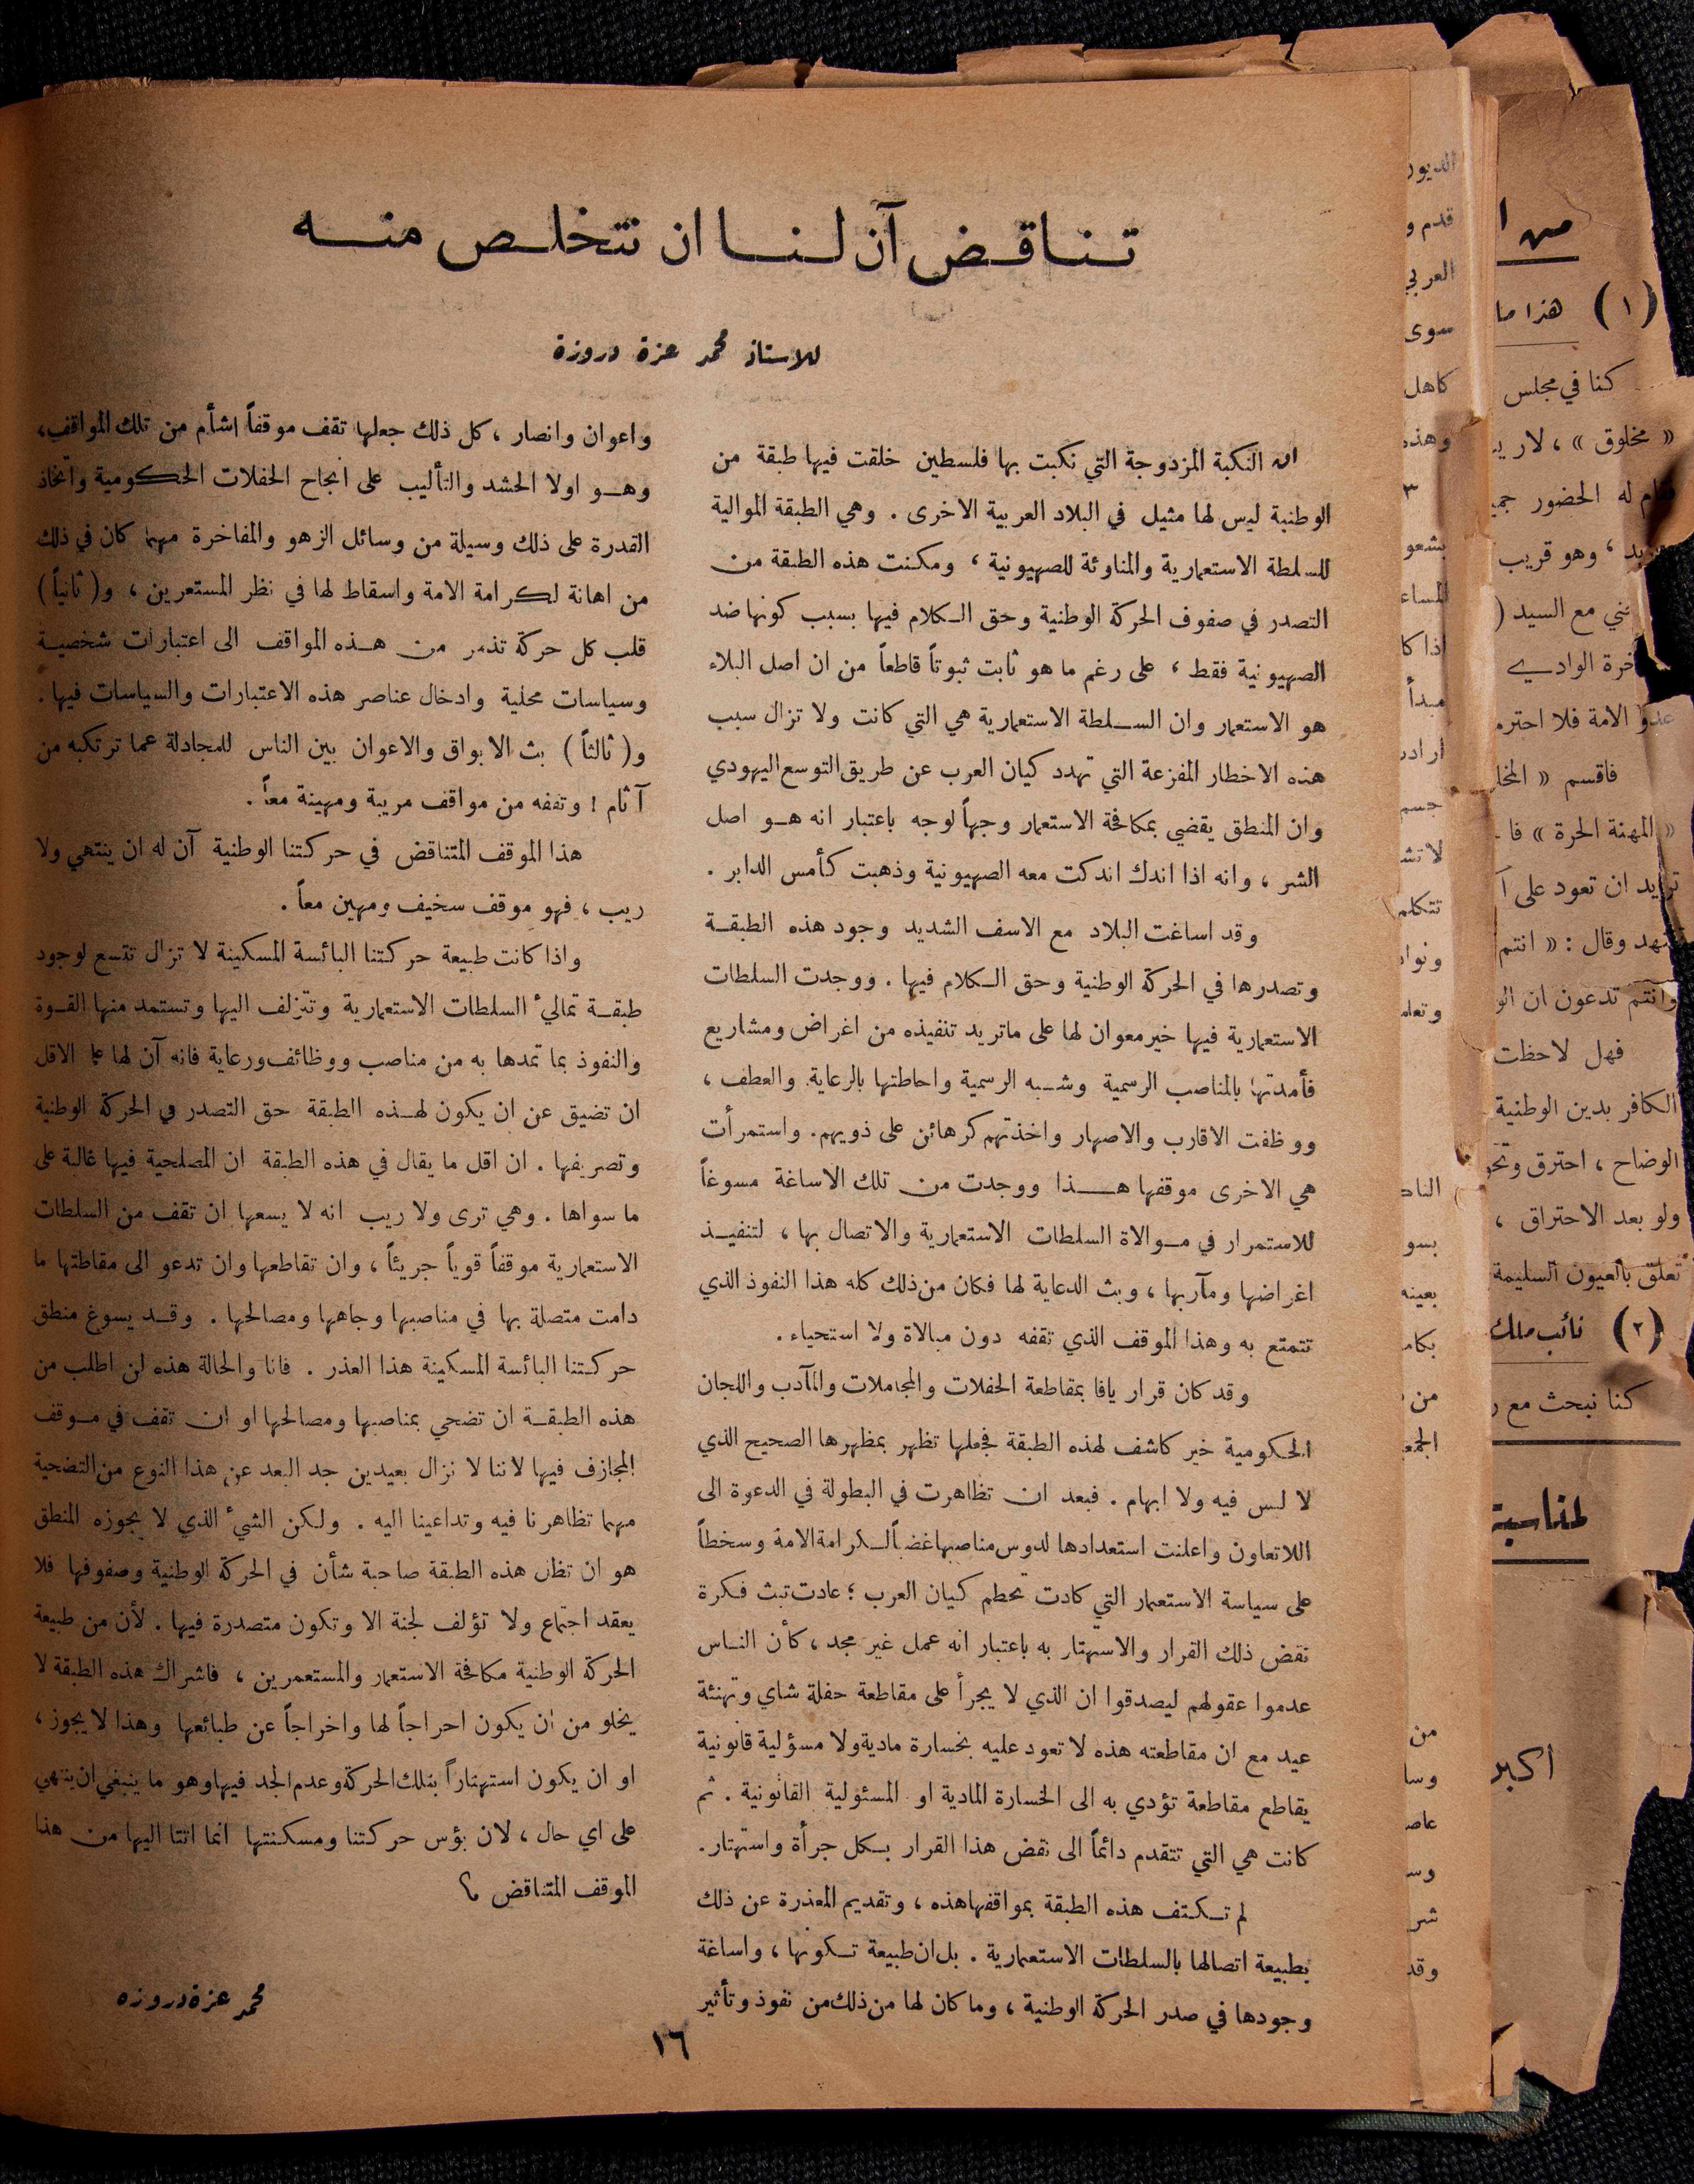 تناقض آن لنا ان نتخلص منه
للاستاذ محمد عزة دروزة
ان النكبة المزدوجة التي نكبت بها فلسطين خلقت فيها طبقة من
الوطنية ليس لها مثيل في البلاد العربية الاخرى . وهي الطبقة الموالية
للسلطة الاستعمارية والمناوئة للصهيونية ، ومكنت هذه الطبقة من
التصدر في صفوف الحركة الوطنية وحق الكلام فيها بسبب كونها ضد
الصهيونية فقط ، على رغم ما هو ثابت ثبوتاً قاطعاً من ان اصل البلاء
هو الاستعمار وان السلطة الاستعمارية هي التي كانت ولا تزال سبب
هذه الاخطار المفزعة التي تهدد كيان العرب عن طريق التوسع اليهودي
وان المنطق يقضي بمكافحة الاستعمار وجهاً لوجه باعتبار انه هو اصل
الشر ، وانه اذا اندك اندكت معه الصهيونية وذهبت كأمس الدابر .
وقد اساغت البلاد مع الاسف الشديد وجود هذه الطبقة
وتصدرها في الحركة الوطنية وحق الكلام فيها . ووجدت السلطات
الاستعمارية فيها خير معوان لها على ماتريد تنفيذه من اغراض ومشاريع
فأمدتها بالمناصب الرسمية وشبه الرسمية واحاطتها بالرعاية والعطف ،
ووظفت الاقارب والاصهار واخذتهم كرهائن على ذويهم. واستمرأت
هي الاخرى موقفها هذا ووجدت من تلك الاساغة مسوغاً
للاستمرار في موالاة السلطات الاستعمارية والاتصال بها ، لتنفيذ
اغراضها ومآربها ، وبث الدعاية لها فكان من ذلك كله هذا النفوذ الذي
تتمتع به وهذا الموقف الذي تقفه دون مبالاة ولا استحياء .
وقد كان قرار يافا بمقاطعة الحفلات والمجاملات والمآدب واللجان
الحكومية خير كاشف لهذه الطبقة فجعلها تظهر بمظهرها الصحيح الذي
لا لبس فيه ولا ابهام . فبعد ان تظاهرت في البطولة في الدعوة الى
اللاتعاون واعلنت استعدادها لدوس مناصبها غضباً لكرامة الامة وسخطاً
على سياسة الاستعمار التي كادت تحطم كيان العرب ؛ عادت تبث فكرة
نقض ذلك القرار والاستهتار به باعتبار انه عمل غير مجد ، كأن الناس
عدموا عقولهم ليصدقوا ان الذي لا يجرأ على مقاطعة حفلة شاي وتهنئة
عيد مع ان مقاطعته هذه لا تعود عليه بخسارة مادية ولا مسؤلية قانونية
يقاطع مقاطعة تؤدي به الى الخسارة المادية او المسئولية القانونية . ثم
كانت هي التي تتقدم دائماً الى نقض هذا القرار بكل جرأة واستهتار.
لم تكتف هذه الطبقة بمواقفها هذه ، وتقديم المعذرة عن ذلك
بطبيعة اتصالها بالسلطات الاستعمارية . بل ان طبيعة تكونها ، واساغة
وجودها في صدر الحركة الوطنية ، وما كان لها من ذلك من نفوذ وتأثير
واعوان وانصار ، كل ذلك جعلها تقف موقفاً اشأم من تلك المواقف،
وهو اولا الحشد والتأليب على انجاح الحفلات الحكومية واتخاذ
القدرة على ذلك وسيلة من وسائل الزهو والمفاخرة مهما كان في ذلك
من اهانة لكرامة الامة واسقاط لها في نظر المستعمرين ، و( ثانياً )
قلب كل حركة تذمر من هذه المواقف الى اعتبارات شخصية
وسياسات محلية وادخال عناصر هذه الاعتبارات والسياسات فيها .
و( ثالثاً ) بث الابواق والاعوان بين الناس للمجادلة عما ترتكبه من
آثام ! وتقفه من مواقف مريبة ومهينة معاً .
هذا الموقف المتناقض في حركتنا الوطنية آن له ان ينتهي ولا
ريب ، فهو موقف سخيف ومهين معاً .
واذا كانت طبيعة حركتنا البائسة المسكينة لا تزال تتسع لوجود
طبقة تمالئ السلطات الاستعمارية وتتزلف اليها وتستمد منها القوة
والنفوذ بما تمدها به من مناصب ووظائف ورعاية فانه آن لها على الاقل
ان تضيق عن ان يكون لهذه الطبقة حق التصدر في الحركة الوطنية
وتصريفها . ان اقل ما يقال في هذه الطبقة ان المصلحية فيها غالبة على
ما سواها . وهي ترى ولا ريب انه لا يسعها ان تقف من السلطات
الاستعمارية موقفاً قوياً جريئاً ، وان تقاطعها وان تدعو الى مقاطتها ما
دامت متصلة بها في مناصبها وجاهها ومصالحها . وقد يسوغ منطق
حركتنا البائسة المسكينة هذا العذر . فانا والحالة هذه لن اطلب من
هذه الطبقة ان تضحي بمناصبها ومصالحها او ان تقف في موقف
المجازف فيها لاننا لا نزال بعيدين جد البعد عن هذا النوع من التضحية
مهما تظاهرنا فيه وتداعينا اليه . ولكن الشيء الذي لا يجوزه المنطق
هو ان تظل هذه الطبقة صاحبة شأن في الحركة الوطنية وصفوفها فلا
يعقد اجتماع ولا تؤلف لجنة الا وتكون متصدرة فيها . لأن من طبيعة
الحركة الوطنية مكافحة الاستعمار والمستعمرين ، فاشراك هذه الطبقة لا
يخلو من ان يكون احراجاً لها واخراجاً عن طبائعها وهذا لا يجوز ،
او ان يكون استهتاراً بتلك الحركة وعدم الجد فيها وهو ما ينبغي ان ينتهي
على اي حال ، لان بؤس حركتنا ومسكنتها انما اتتا اليها من هذا
الموقف المتناقض ؟
محمد عزة دروزه
١٦
الديور
قدم و
العربي
سوى
كاهل
وهذه
٣
بشعو
المساء
اذا كا
مبدأ
جسم
تتكلم
بعينه
من
الجمعـ
من
وسا
عاصـ
وسـ
شر
وقد
من ا
( ١ ) هذا ما
كنا في مجلس
« مخلوق » ، لار يـ
له الحضور جميـ
، وهو قريب
مع السيد (
خرة الوادي
عدو الامة فلا احترم
فاقسم « المخلـ
« المهنة الحرة » فا
تريد ان تعود على آ
وقال : « انتم
وانتم تدعون ان الو
فهل لاحظت
الكافر بدين الوطنية
الوضاح ، احترق وتحو
ولو بعد الاحتراق ،
تعلق بالعيون السليمة
( ٢ ) نائب ملك
كنا نبحث مع ر
لمناسبة
اكبر